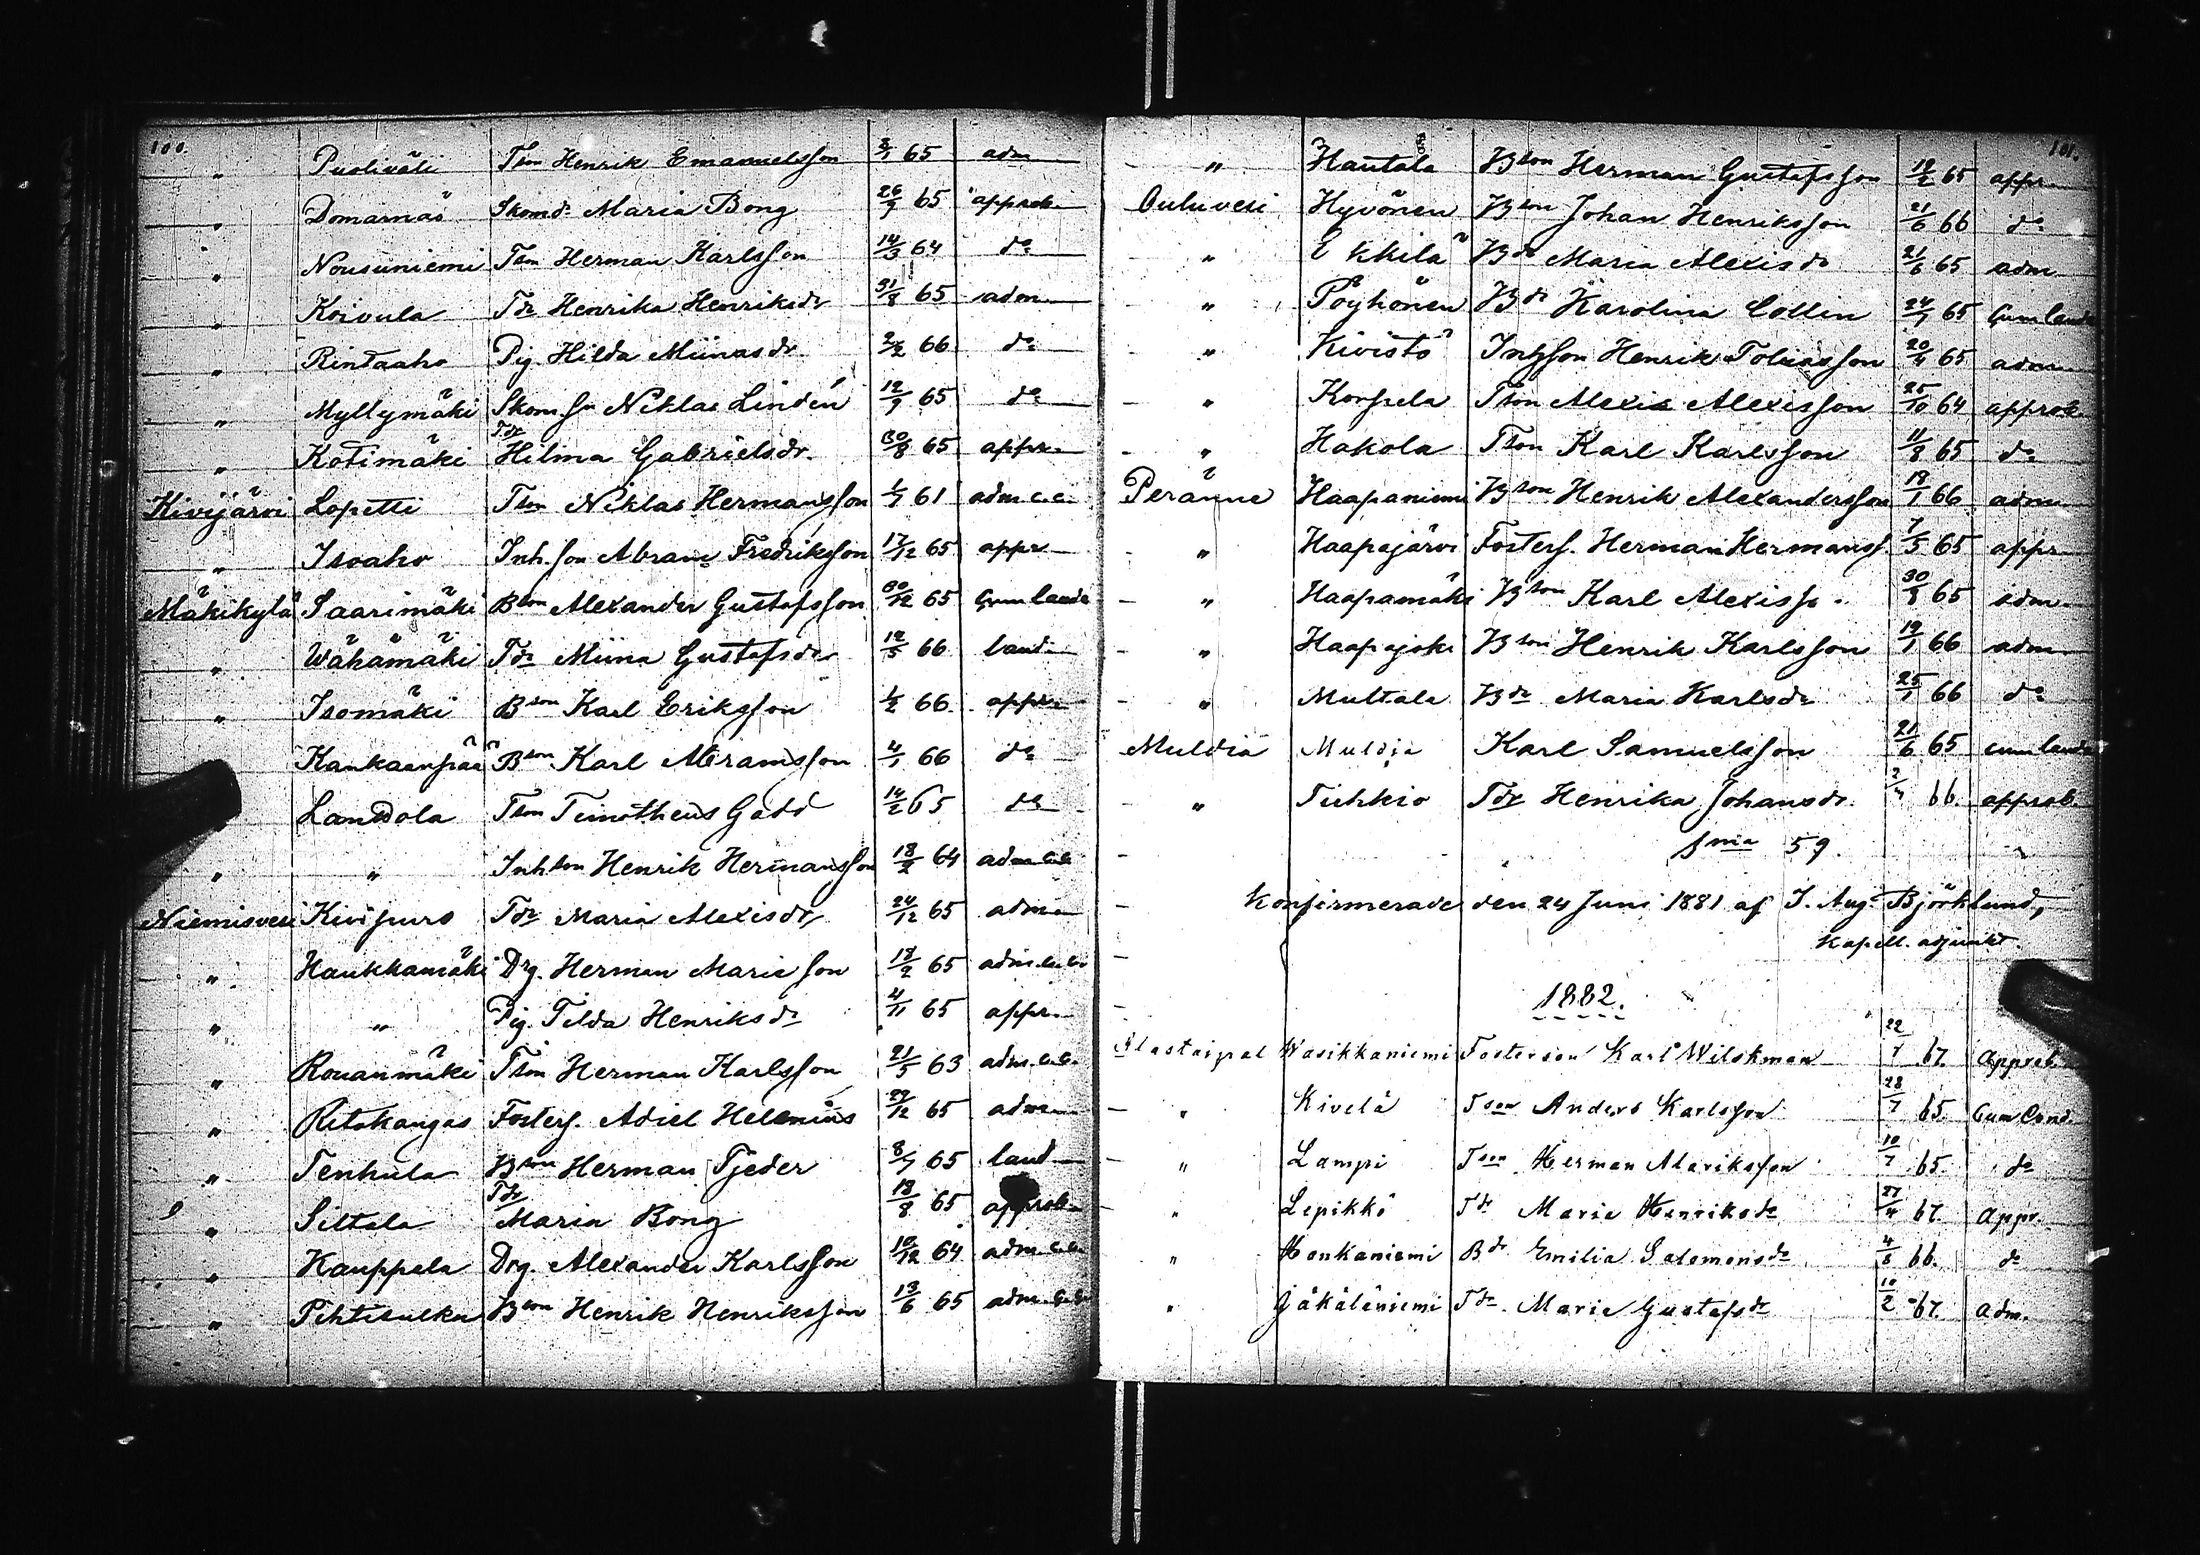 100.
" Puoliväli Tson Henrik Emanuelsson 2/1 65 adm
" Domarnäs Skomd. Maria Bong 26/9 65 approb.
" Nousuniemi Tson Herman Karlsson 14/3 64 do
" Koivula Tdr Henrika Henriksdr 31/8 65 adm
" Rintaaho Pig. Hilda Miinasdr 2/2 66 do
" Myllymäki Skom.sn Niklas Lindén 12/9 65 do
" Kotimäki Tdr Hilma Gabrielsdr. 30/8 65 appr.
Kivijärvi Lopetti Tson Niklas Hermansson 1/7 61 adm c.c.
" Isoaho Inh.son Abram Fredriksson 17/12 65 appr
Mäkikylä Saarimäki Bson Alexander Gustafsson 30/12 65 Cum laude
" Wähämäki Tdr Miina Gustafsdr 12/5 66 laud
" Isomäki Bson Karl Eriksson 1/2 66 appr.
Kankaanpää Bson Karl Abramsson 4/1 66 do
Landola Tson Timotheus Gadd 14/2 65 do
" " Inhson Henrik Hermansson 18/2 64 adm c.c.
Niemisvesi Kivipuro Tdr Maria Alexisdr 24/12 65 adm
" Haukkamäki Drg. Herman Marieson 18/2 65 adm. c.c.
" " Pig. Tilda Henriksdr 4/11 65 appr.
" Rouanmäki Tson Herman Karlsson 21/5 63 adm. c.c.
" Ritokangas Fosters. Adiel Helenius 27/12 65 adm
" Tenhula Bson Herman Tjeder 8/7 65 laud
" Siltala Tdr Maria Bong 18/8 65 approb.
" Kauppela Drg. Alexander Karlsson 10/12 64 adm. c.c.
" Pihtisulku Bson Henrik Henriksson 13/6 65 adm. c.c.
101.
" Hautala Bson Herman Gustafsson 18/2 65 appr.
Ouluvesi Hyvönen Bson Johan Henriksson 21/6 66 do
" Ekkilä Bdr Maria Alexisdr 21/6 65 adm
" Pöyhönen Bdr Karolina Collin 24/7 65 Cum laude
" Kivistö Inhsson Henrik Tobiasson 20/4 65 adm
" Korpela Tson Alexis Alexisson 25/10 64 approb
" Hakola Tson Karl Karlsson 11/8 65 do
Peränne Haapaniemi Bson Henrik Alexandersson 18/1 66 adm
" Haapajärvi Fosters. Herman Hermanss 7/5 65 appr
" Haapamäki Bson Karl Alexiss. 30/8 65 adm.
" Haapajoki Bson Henrik Karlsson 19/1 66 adm
" Multala Bdr Maria Karlsdr 25/1 66 do
Muldia Muldia Karl Samuelsson 21/6 65 cum laude
" Tuhkio Tdr Henrika Johansdr. 66. approb.
Sma 59.
Konfirmerade den 24 Juni 1881 af J. Aug. Björklund,
Kapell. adjunkt.
1882.
Wasikkaniemi Fosterson Karl Wilskman 22/7 67. Approb.
" Kivelä Tson Anders Karlsson 28/7 65. Cum Laud.
" Lampi Tson Herman Alariksson 10/7 65. do
" Lepikkö Tdr Maria Henriksdr 27/4 67. Appr.
" Honkaniemi Bdr Emilia Salomonsdr 4/8 66. do
" Jäkäläniemi Tdr Maria Gustafsdr 10/2 67. Adm.